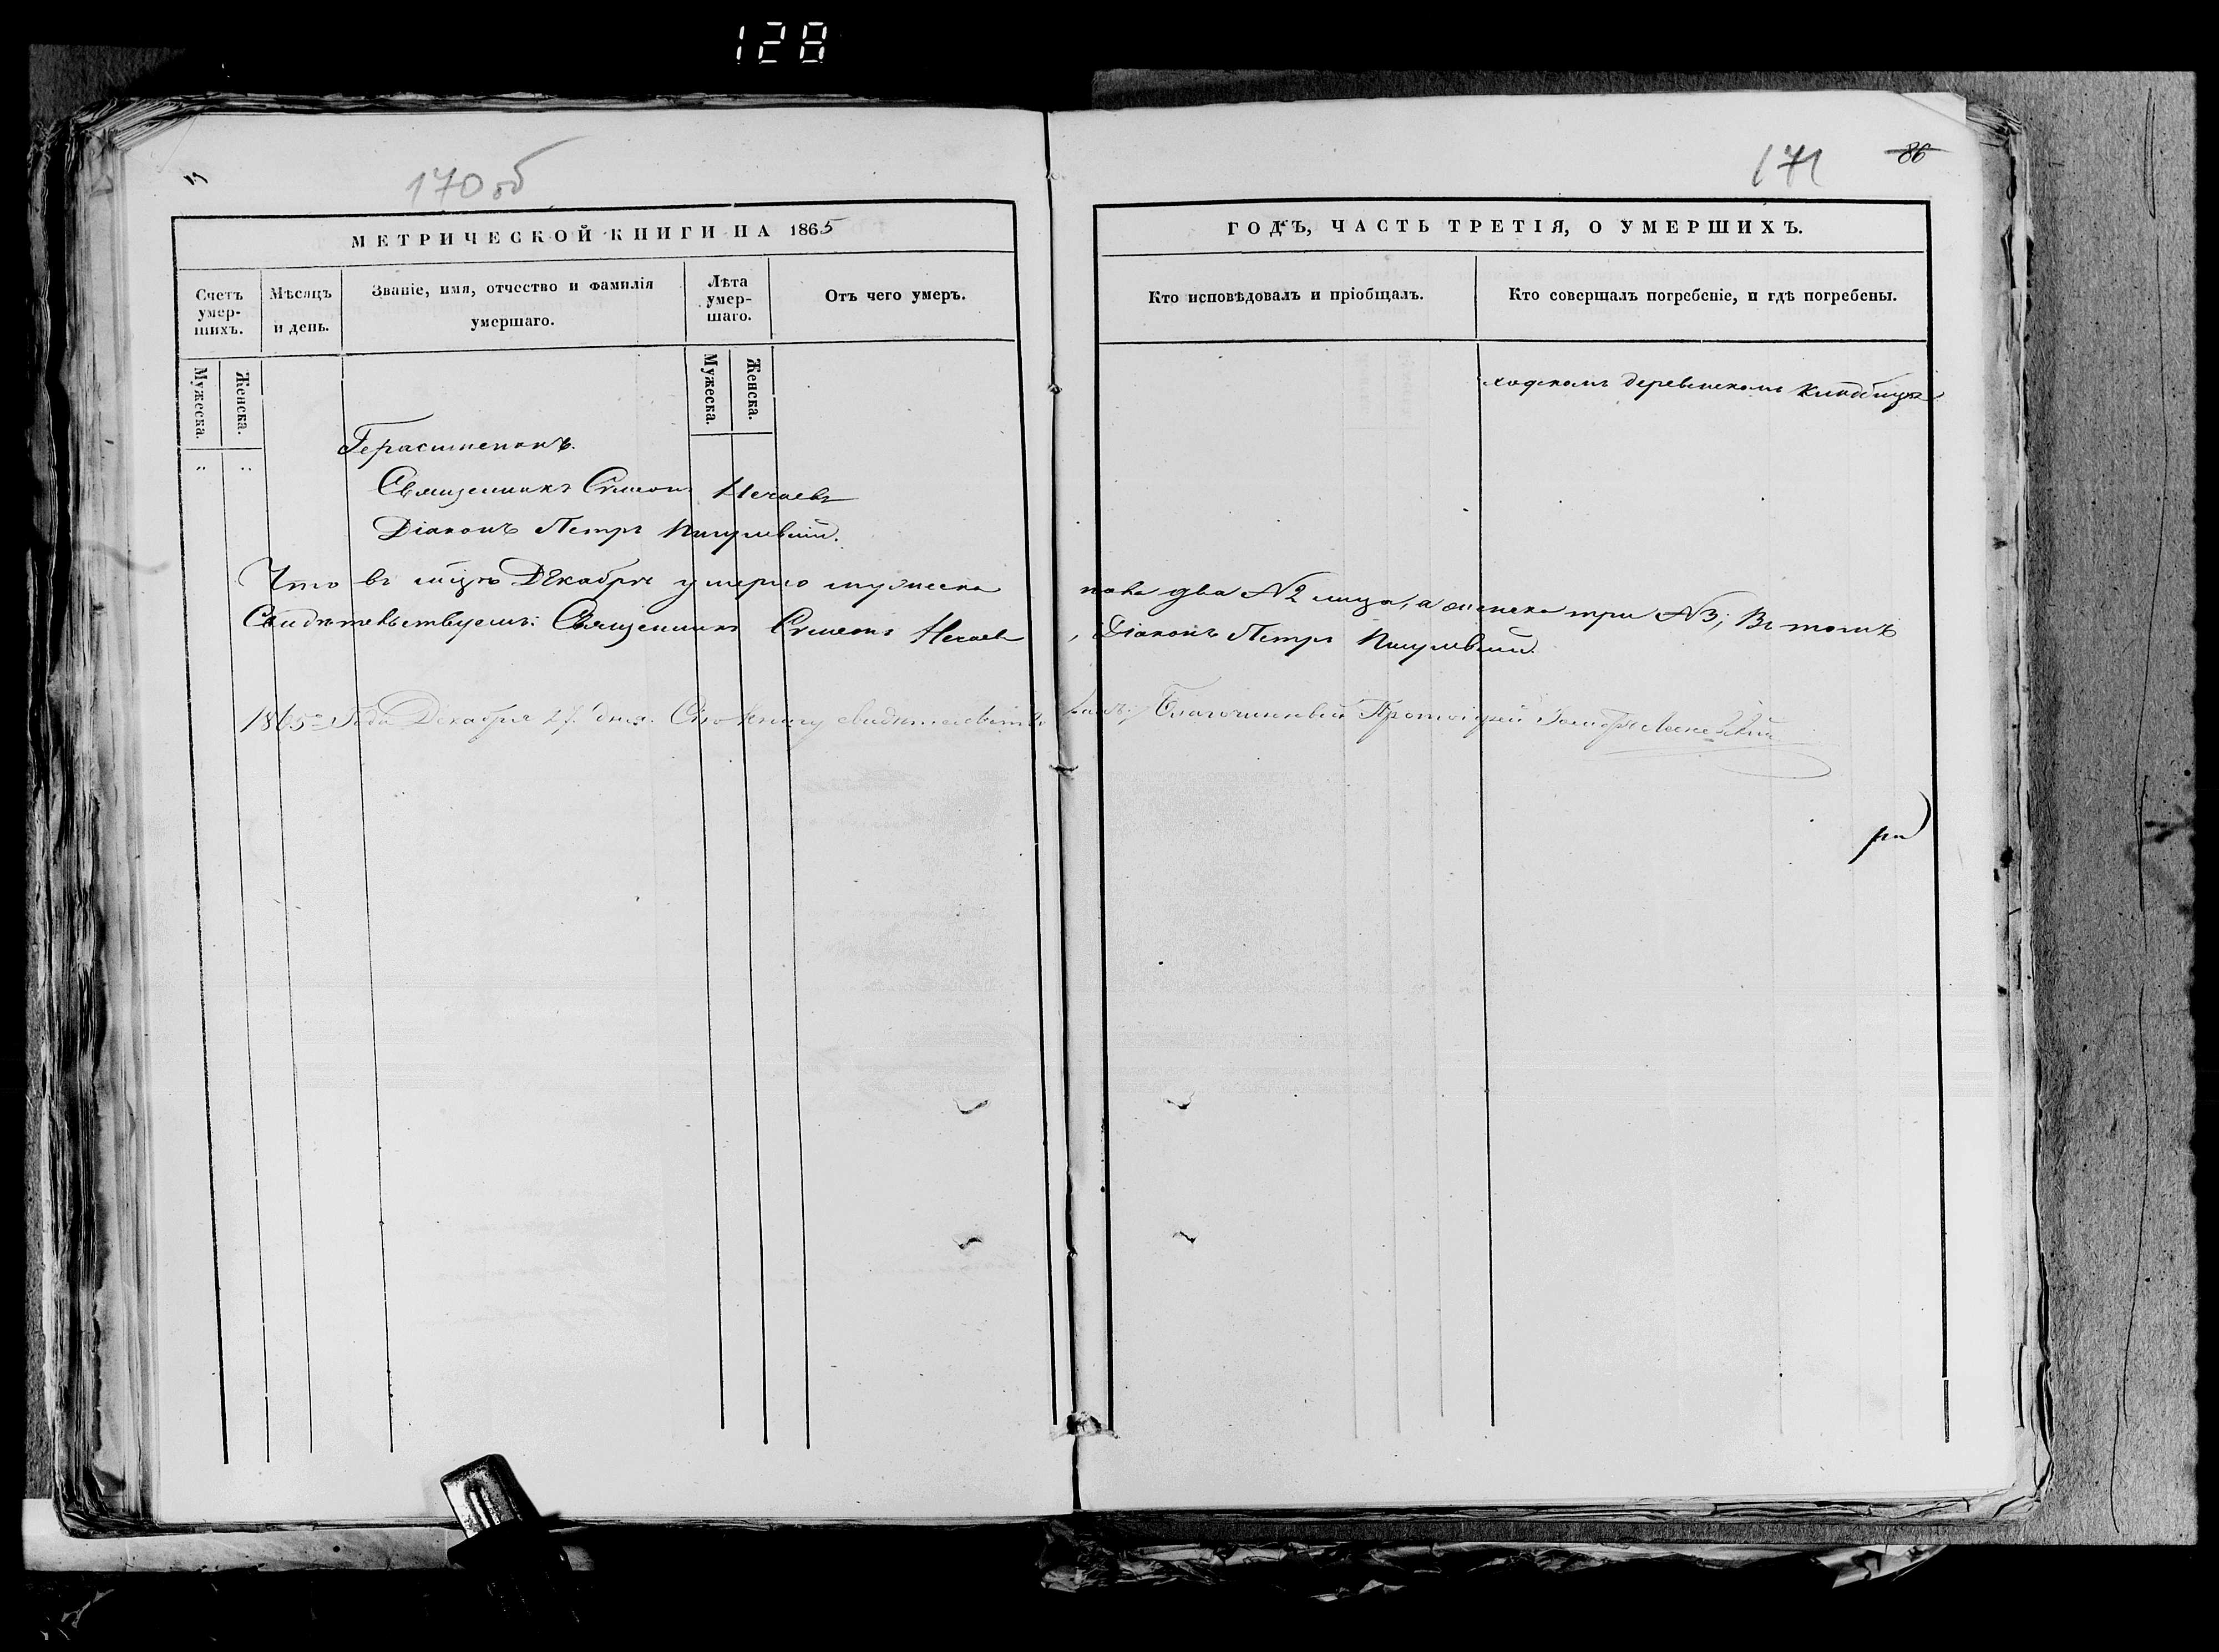 128
170 об
171
86
МЕТРИЧЕСКОЙ КНИГИ НА 1865
ГОДЪ, ЧАСТЬ ТРЕТІЯ, О УМЕРШИХЪ.
Счетъ умер-
шихъ.
Мѣсяцъ
и день.
Званіе, имя, отчество и фамилія
умершаго.
Лѣта
умер-
шаго.
Отъ чего умеръ.
Кто исповѣдовалъ и пріобщалъ.
Кто совершалъ погребеніе, и гдѣ погребены.
Мужеска.
Женска.
Мужеска.
Женска.
ходскомъ деревенскомъ кладбищѣ
Герасименокъ.
Священникъ Симеонъ Нечаевъ
Діаконъ Петръ
Что въ мцѣ Декабрѣ умерло мужеска пола два №2 лица, а женска три №3; Въ томъ
Свидѣтельствуемъ: Священникъ Симеонъ Нечаевъ, Діаконъ Петръ
1865го Года Декабря 27. дня. Сію Книгу свидѣтельствовалъ: Благочинный Протоіерей